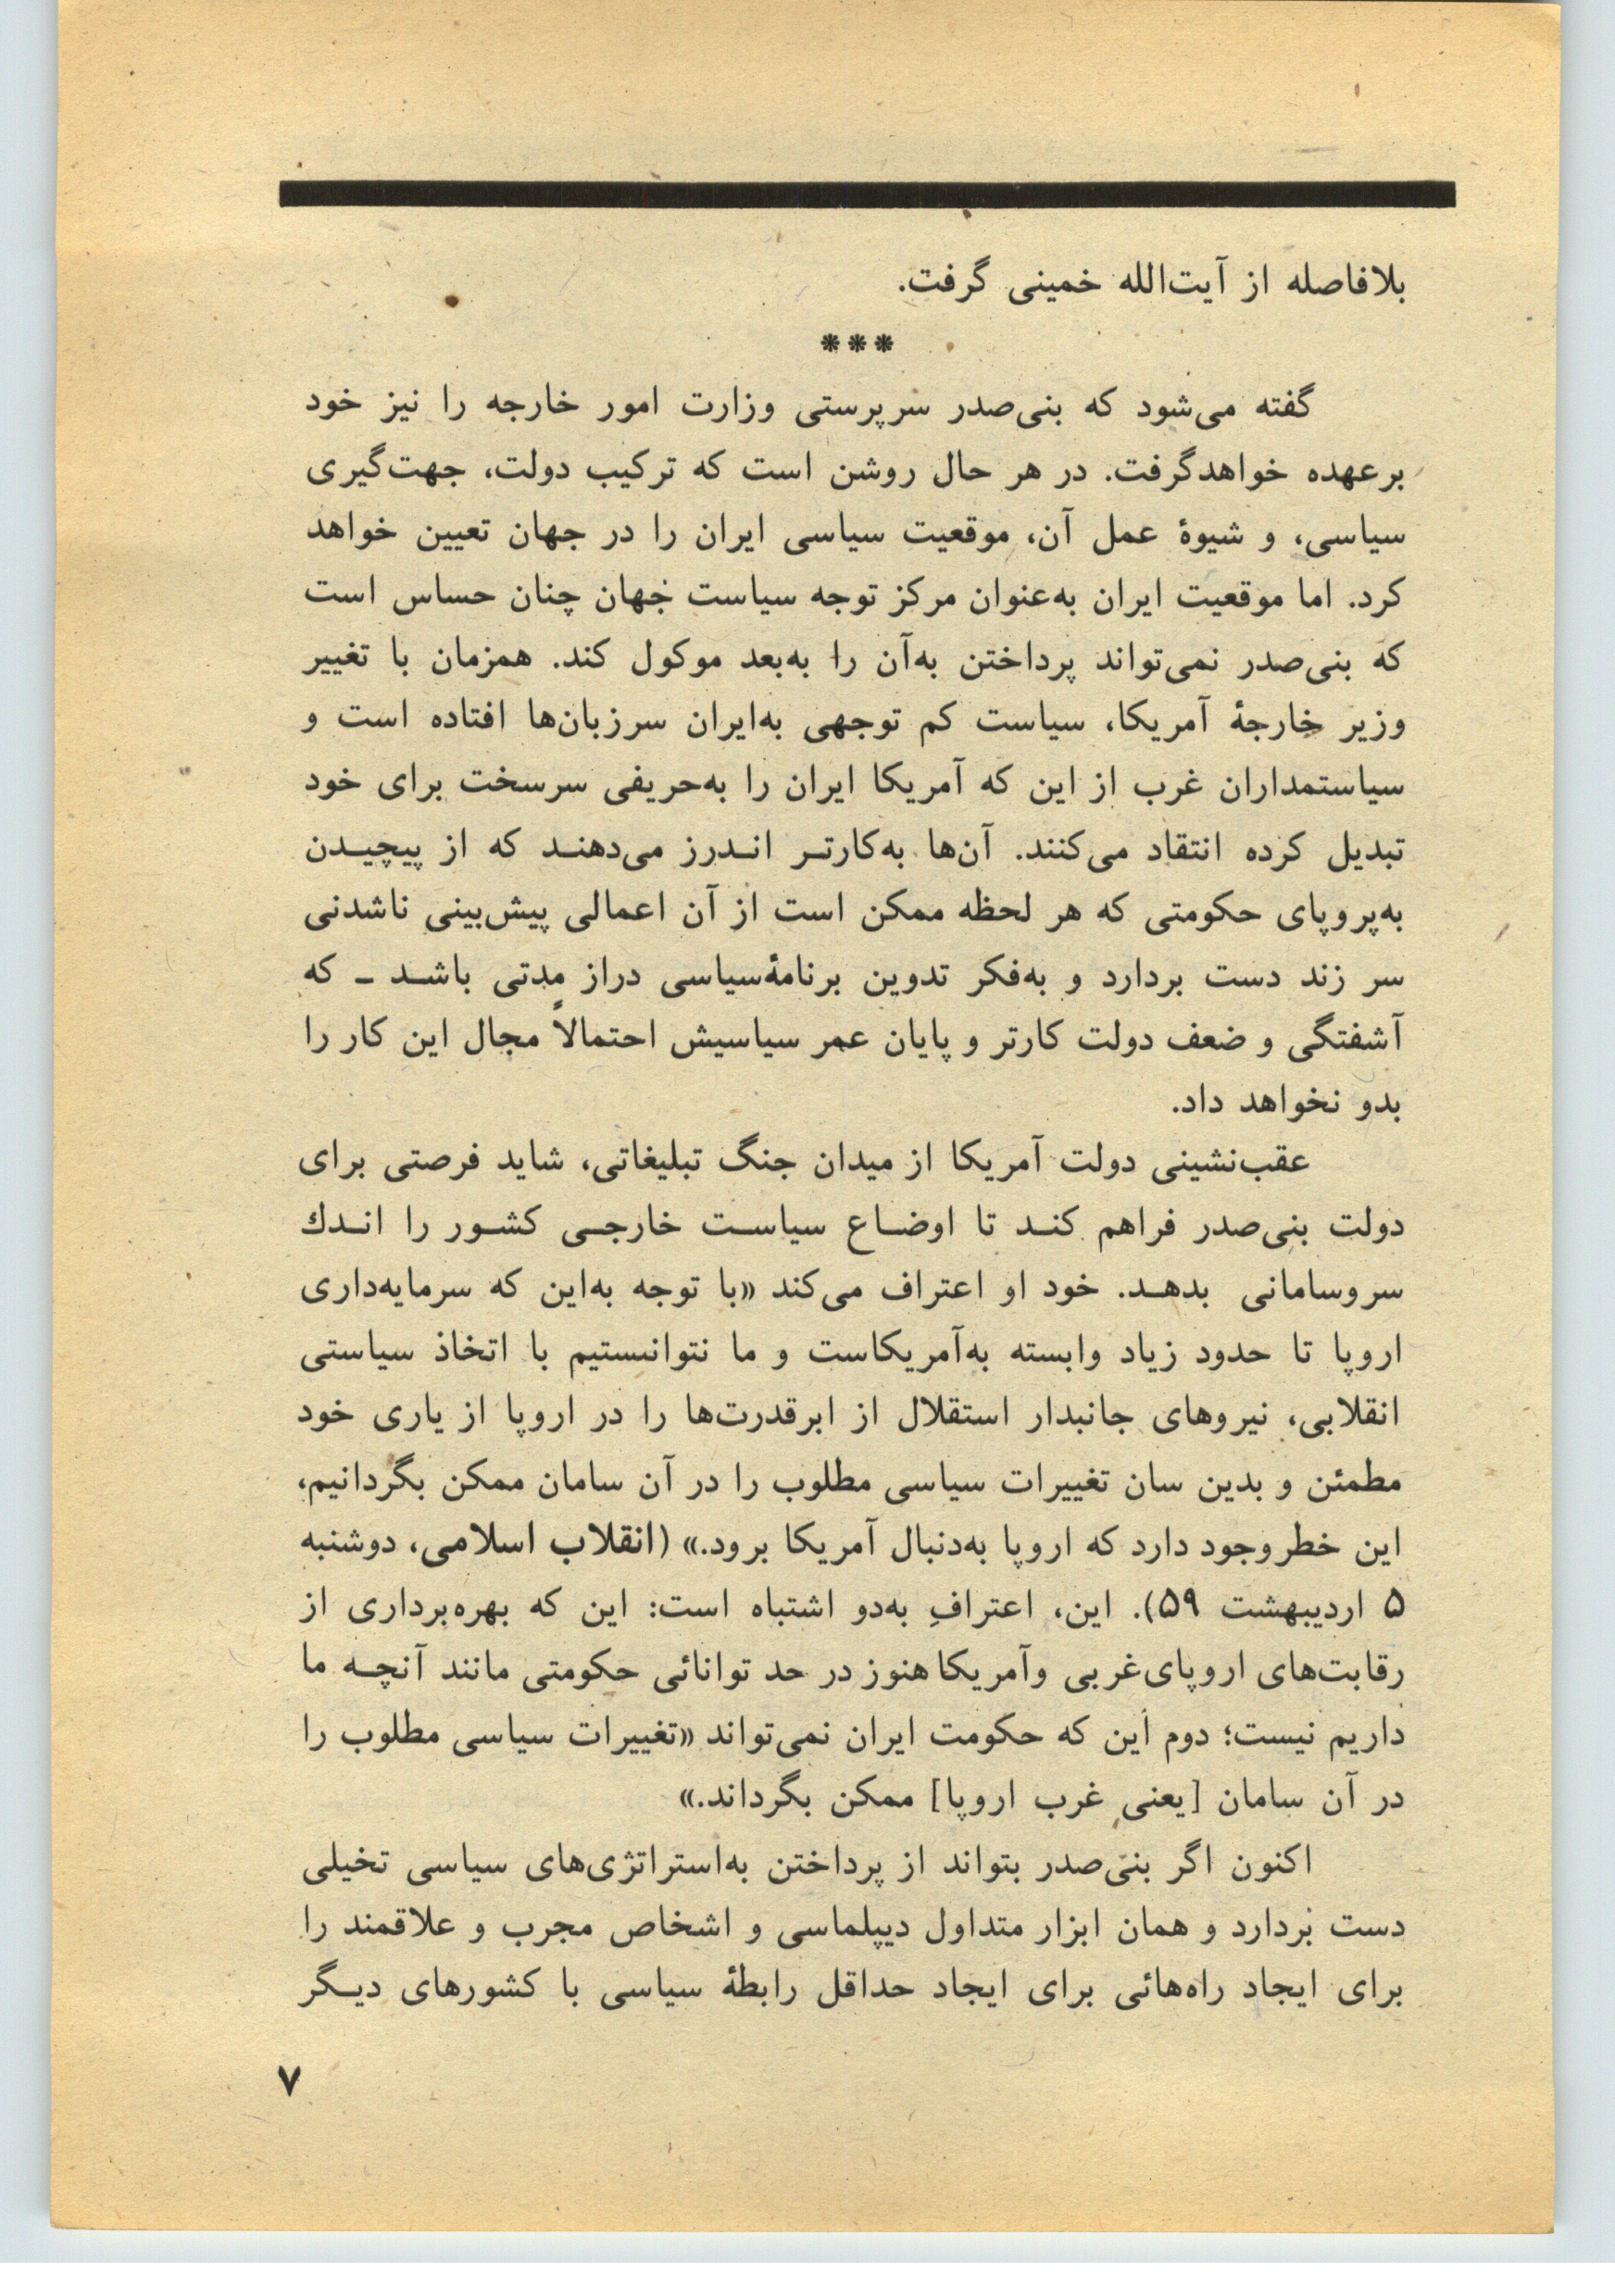 بلافاصله از آیت‌الله خمینی گرفت.
***
گفته می‌شود که بنی‌صدر سرپرستی وزارت امور خارجه را نیز خود
برعهده خواهدگرفت. در هر حال روشن است که ترکیب دولت، جهت‌گیری
سیاسی، و شیوهٔ عمل آن، موقعیت سیاسی ایران را در جهان تعیین خواهد
کرد. اما موقعیت ایران به‌عنوان مرکز توجه سیاست جهان چنان حساس است
که بنی‌صدر نمی‌تواند پرداختن به‌آن را به‌بعد موکول کند. همزمان با تغییر
وزیر خارجهٔ آمریکا، سیاست کم توجهی به‌ایران سرزبان‌ها افتاده است و
سیاستمداران غرب از این که آمریکا ایران را به‌حریفی سرسخت برای خود
تبدیل کرده انتقاد می‌کنند. آن‌ها به‌کارتـر انـدرز می‌دهنـد که از پیچیـدن
به‌پروپای حکومتی که هر لحظه ممکن است از آن اعمالی پیش‌بینی ناشدنی
سر زند دست بردارد و به‌فکر تدوین برنامهٔ‌سیاسی دراز مدتی باشـد ـ که
آشفتگی و ضعف دولت کارتر و پایان عمر سیاسیش احتمالاً مجال این کار را
بدو نخواهد داد.
عقب‌نشینی دولت آمریکا از میدان جنگ تبلیغاتی، شاید فرصتی برای
دولت بنی‌صدر فراهم کنـد تا اوضـاع سیاسـت خارجـی کشـور را انـدك
سروسامانی بدهـد. خود او اعتراف می‌کند «با توجه به‌این که سرمایه‌داری
اروپا تا حدود زیاد وابسته به‌آمریکاست و ما نتوانستیم با اتخاذ سیاستی
انقلابی، نیروهای جانبدار استقلال از ابرقدرت‌ها را در اروپا از یاری خود
مطمئن و بدین سان تغییرات سیاسی مطلوب را در آن سامان ممکن بگردانیم،
این خطر وجود دارد که اروپا به‌دنبال آمریکا برود.» (انقلاب اسلامی، دوشنبه
۵ اردیبهشت ۵۹). این، اعترافِ به‌دو اشتباه است: این که بهره‌برداری از
رقابت‌های اروپای‌غربی وآمریکا هنوز در حد توانائی حکومتی مانند آنچـه ما
داریم نیست؛ دوم این که حکومت ایران نمی‌تواند «تغییرات سیاسی مطلوب را
در آن سامان [یعنی غرب اروپا] ممکن بگرداند.»
اکنون اگر بنی‌صدر بتواند از پرداختن به‌استراتژی‌های سیاسی تخیلی
دست بردارد و همان ابزار متداول دیپلماسی و اشخاص مجرب و علاقمند را
برای ایجاد راه‌هائی برای ایجاد حداقل رابطهٔ سیاسی با کشورهای دیـگر
۷